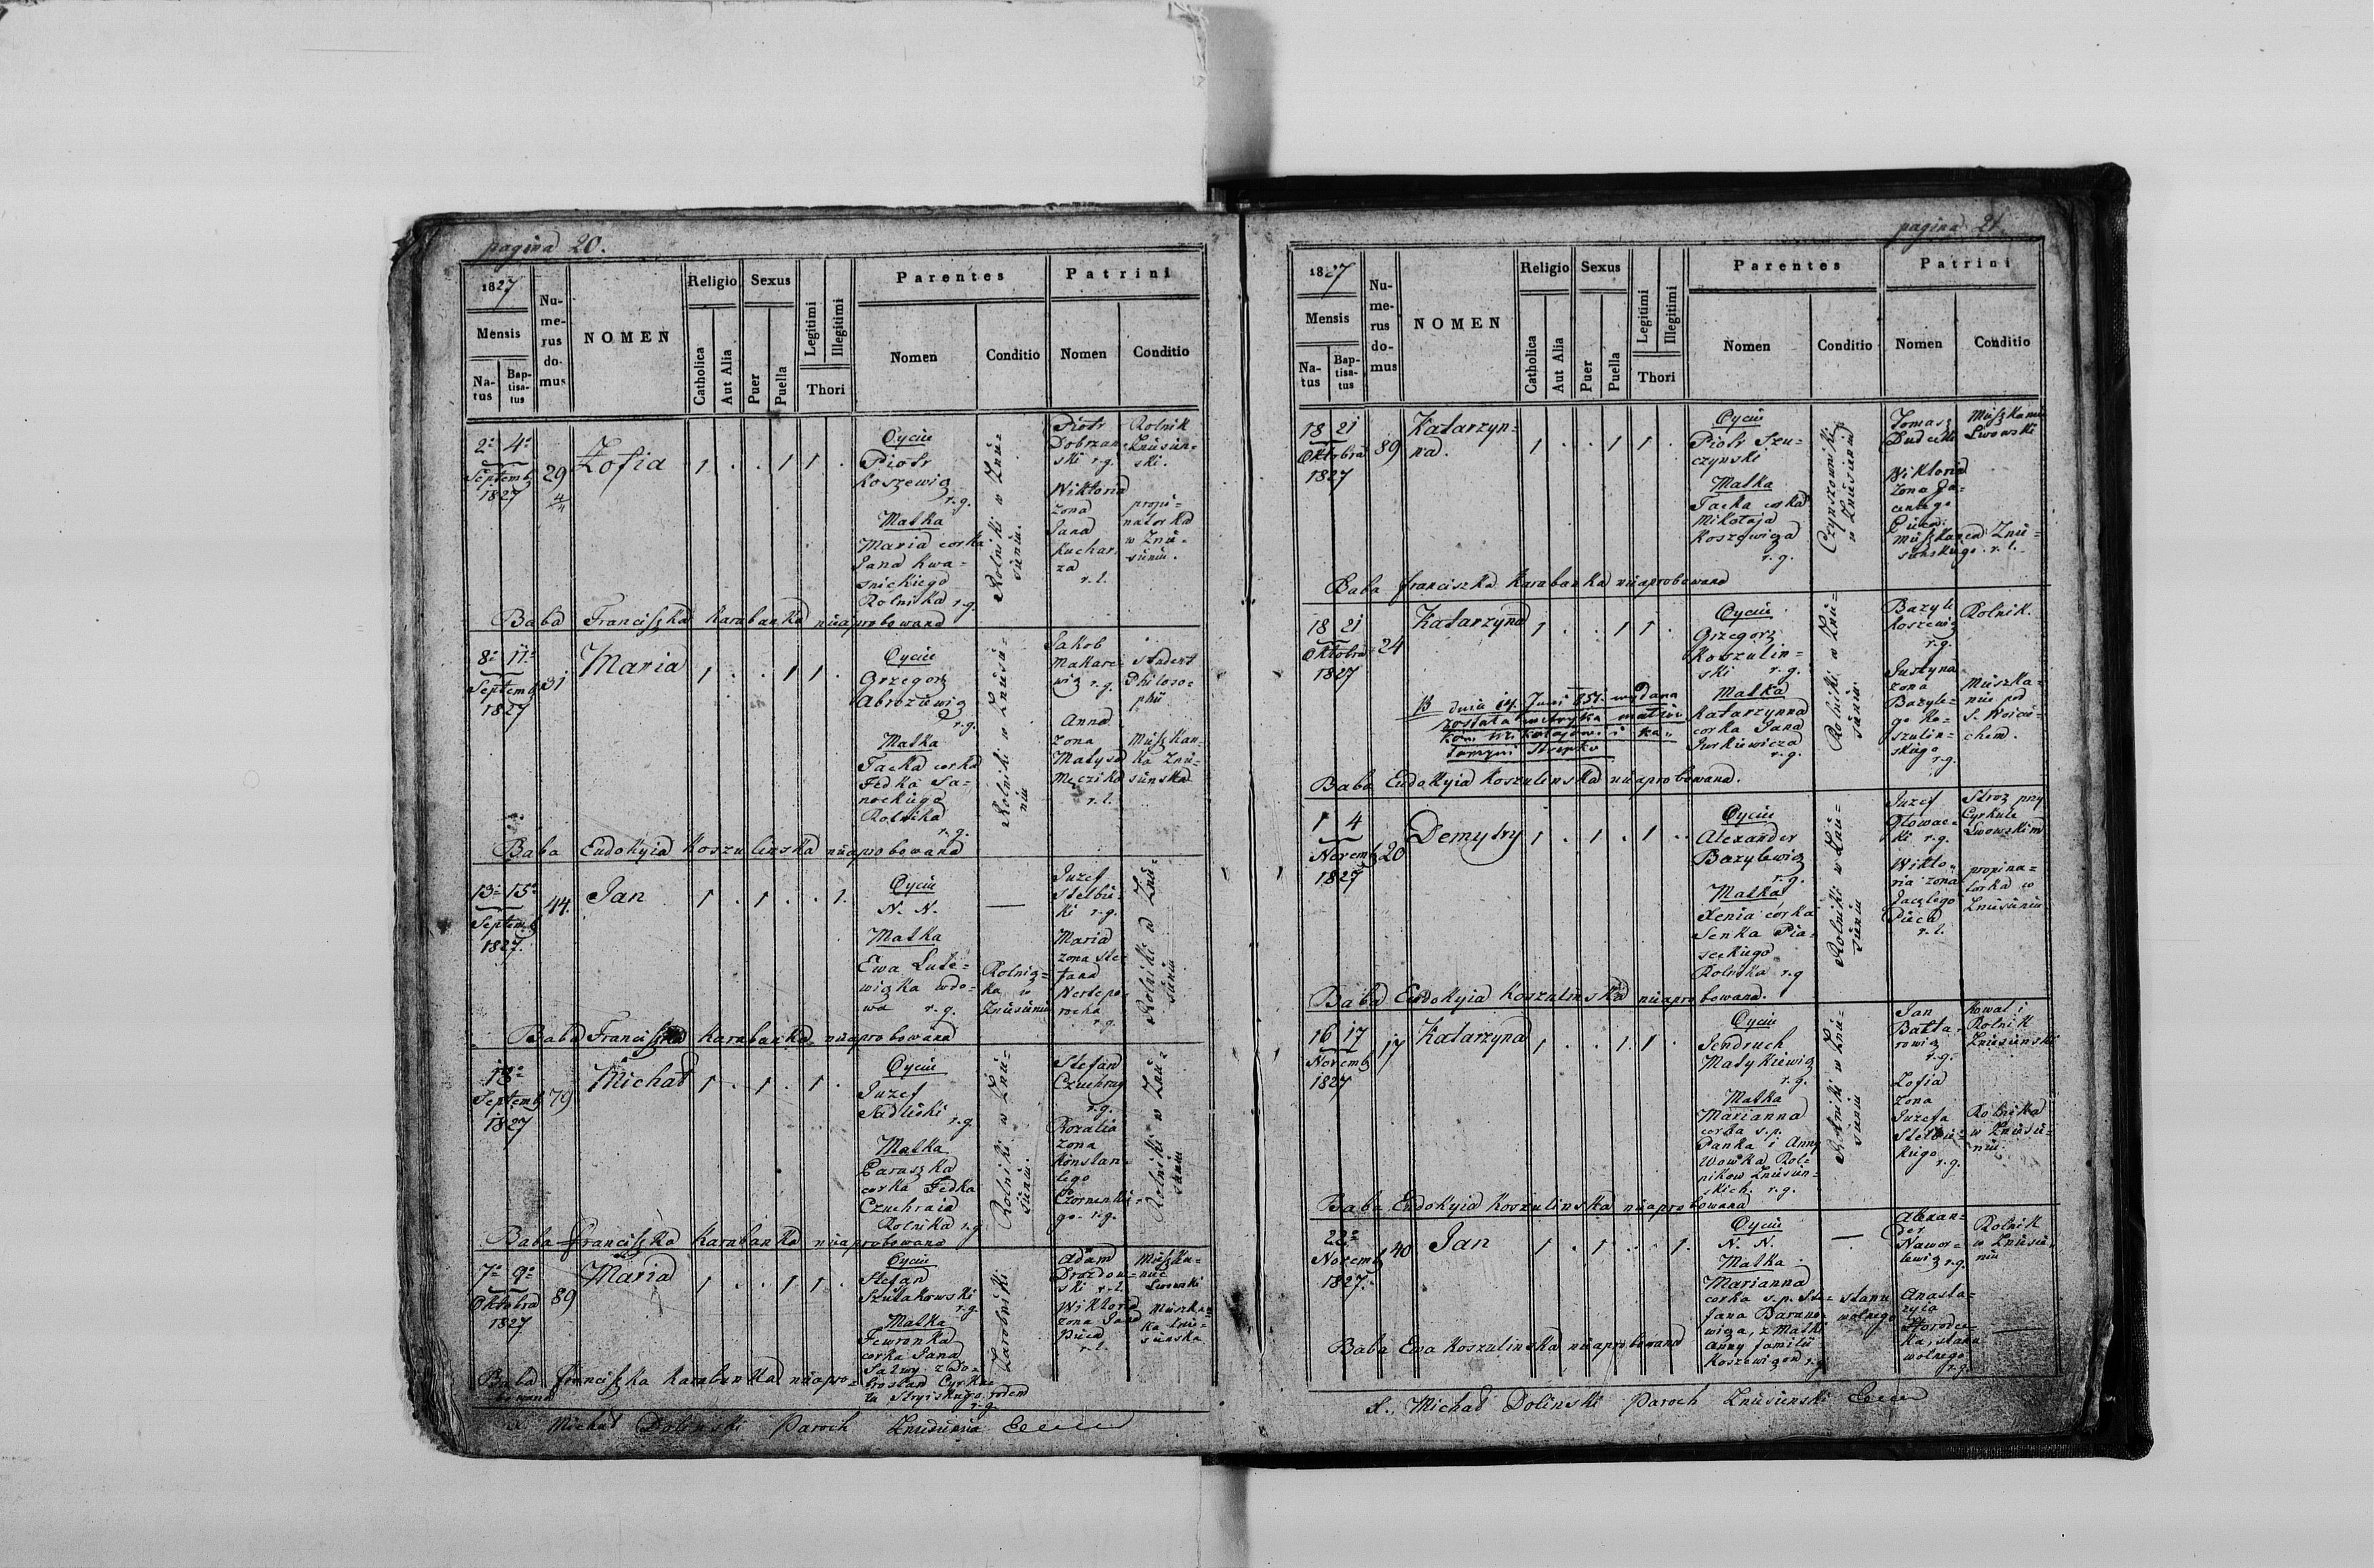 pagina 20.
1827
Mensis
Na-
tus
Bap-
tisa-
tus
Nu-
me-
rus
do-
mus
NOMEN
Religio
Catholica
Aut Alia
Sexus
Puer
Puella
Legitimi
Illegitimi
Thori
Parentes
Nomen
Conditio
Patrini
Nomen
Conditio
2. 4.
Septemb
1827
29
Zofia
1 . . 1 1 .
Oyciec
Piotr
Koszewicz
r.g.
Matka
Maria corka
Jana Kwa-
snickiego
Rolnika r.g.
Rolniki w Zniesieniu.
Piotr
Dobrzan-
ski r.g.
Wiktoria
zona
Jana
Kuchar-
za
r.l.
Rolnik
Zniesien-
ski.
propi-
natorka
w Znie-
sieniu.
Baba Franciszka Karabanka nieaprobowana
8. 11.
Septemb
1827
31
Maria
1 . . 1 1 .
Oyciec
Grzegorz
r.g.
Matka
Tacka corka
Fedka Sa-
nockiego
Rolnika
r.g.
Rolniki w Zniesieniu
Jakob
Makare-
wicz r.g.
Anna
zona
Matysa
r.l.
Student
Philoso-
phii
Mieszkan-
ka Znie-
sienska
Baba Eudokyia Koszulinska nieaprobowana
13. 15.
Septemb
1827.
44.
Jan
1 . 1 . . 1.
Oyciec
N. N.
Matka
Ewa Lute-
wiczka wdo-
wa r.g.
—
Rolnicz-
ka w
Zniesieniu
Juzef
Stelbic-
ki r.g.
Maria
zona Ste-
fana
r.g.
Rolniki w Zniesieniu
Baba Franciszka Karabanka nieaprobowana
18.
Septemb
1827
79
Michał
1 . 1 . 1 .
Oyciec
Juzef
r.g.
Matka
Paraszka
corka Fedka
Czuchraia
Rolnika r.g.
Rolniki w Zniesieniu.
Stefan
Czuchray
r.g.
Rozalia
zona
Konstan-
tego
go r.g.
Rolniki w Zniesieniu
Baba Franciszka Karabanka nieaprobowana
7. 9.
Oktobra
1827
89
Maria
1 . . 1 1 .
Oyciec
Stefan
Szulakowski
r.g.
Matka
Fewronka
corka Jana
Cyrku-
łu Stryiskiego rodem
r.g.
Zarobniki
Adam
Drozdow-
ski r.l.
Wiktoria
zona Jana
Pieca
r.l.
Mieszka-
niec
Lwowski
Mieszkan-
ka Znie-
sienska
Baba Franciszka Karabanka nieapro-
bowana
X. Michał Dolinski Paroch Zniesienia
pagina 21.
1827
Mensis
Na-
tus
Bap-
tisa-
tus
Nu-
me-
rus
do-
mus
NOMEN
Religio
Catholica
Aut Alia
Sexus
Puer
Puella
Legitimi
Illegitimi
Thori
Parentes
Nomen
Conditio
Patrini
Nomen
Conditio
18 21
Oktobra
1827
89
Katarzyn-
na.
1 . . 1 1 .
Oyciec
Piotr Szu-
czynski
Matka
Tacka corka
Mikołaja
Koszewicza
r.g.
Czynszowniki w Zniesieniu
Tomasz
Wiktoria
zona Ja-
centego
Pieca
mieszkanca Znie-
sienskiego r.l.
Mieszkaniec
Lwowski
Baba Franciszka Karabanka nieaprobowana
18 21
Oktobra
1827
24
Katarzyna
1 . . 1 1 .
dnia 14. Juni 851. wydana
została metryka
Oyciec
Grzegorz
Koszulin-
ski r.g.
Matka
Katarzynna
corka Jana
Jurkiewicza
r.g.
Rolniki w Zniesieniu.
Bazyli
Koszewicz
r.g.
Justyna
zona
Bazyle-
go Ko-
szulin-
skiego
r.g.
Rolnik.
Mieszka-
nie pod
S. Woicie-
chem.
Baba Eudokyia Koszulinska nieaprobowana.
1 4
Novemb
1827
20
Demytry
1 . 1 . 1 . .
Oyciec
Alexander
Bazylewicz
r.g.
Matka
Xenia corka
Senka Pia-
seckiego
Rolnika r.g
Rolniki w Zniesieniu
Juzef
Głowac-
ki r.g.
Wikto-
ria zona
Jacetego
Pieca
r.l.
Stroz przy
Cyrkule
Lwowskim
propina-
torka w
Zniesieniu
Baba Eudokyia Koszulinska nieaprobowana.
16 17
Novemb
1827
17
Katarzyna
1 . . 1. 1 .
Oyciec
Jendruch
Matykiewicz
r.g.
Matka
Marianna
corka s.p.
Panka i Anny
Wowka Rol-
nikow Zniesien-
skich. r.g.
Rolniki w Zniesieniu
Jan
Balta-
rowicz
r.g.
Zofia
zona
Juzefa
Stelbic-
kiego
r.g.
Kowal i
Rolnik
Zniesienski
Rolnika
w Zniesie-
niu.
Baba Eudokyia Koszulinska nieaprobowana
22.
Novemb
1827.
40
Jan
1 . 1 . . 1.
Oyciec
N. N.
Matka
Marianna
corka s.p. Ste-
fana Barano-
wicza, z Matki
Anny familii
r.g.
—
stanu
wolnego
Alexan-
der
Nawor-
lewicz r.g.
Anasta-
zyia
Horodec-
ka, stanu
wolnego
r.g.
Rolnik
w Zniesie-
niu
—
Baba Ewa Koszulinska nieaprobowana
X. Michał Dolinski Paroch Zniesienski